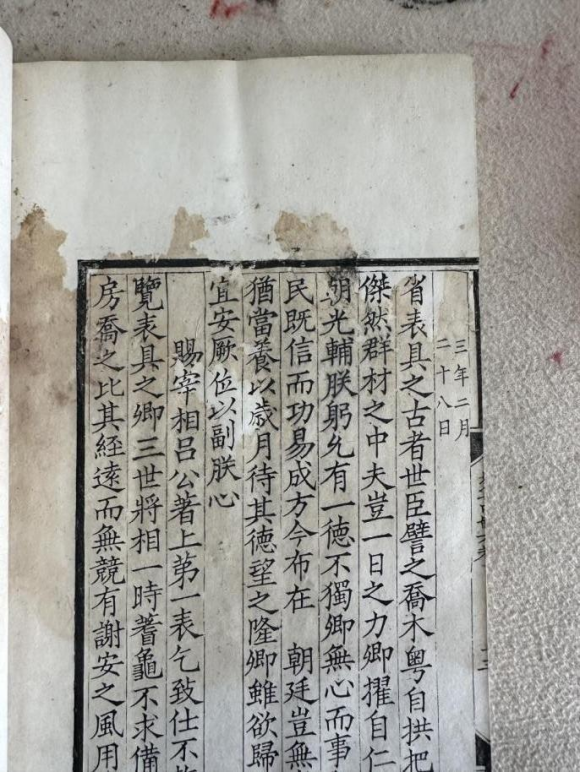 三年二月
二十八日
省表具之古者世臣譬之喬木粤自拱把
傑然群材之中夫豈一日之力卿擢自仁
朝光輔朕躬允有一德不獨卿無心而事
民既信而功易成方今布在 朝廷豈無
猶當養以歲月待其德望之隆卿雖欲歸
宜安厥位以副朕心
賜宰相呂公著上第一表乞致仕不
覽表具之卿三世將相一時蓍龜不求備
房喬之比其経遠而無競有謝安之風用